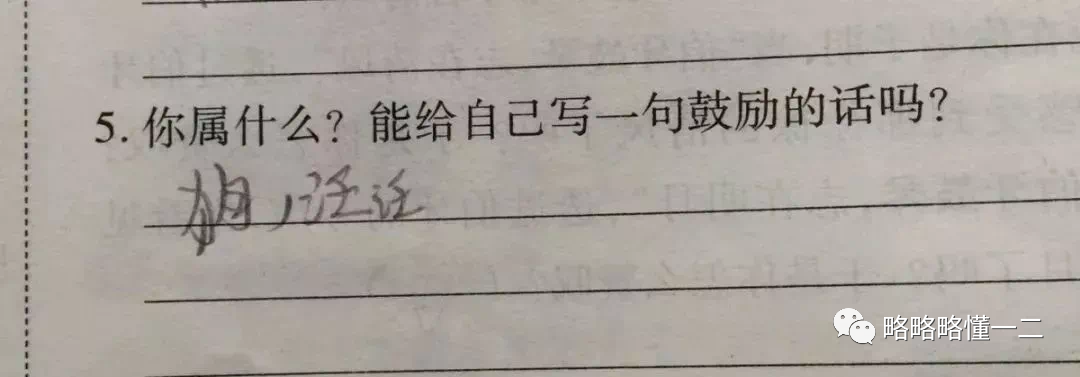 5. 你属什么？能给自己写一句鼓励的话吗？
，汪汪
略略略懂一二